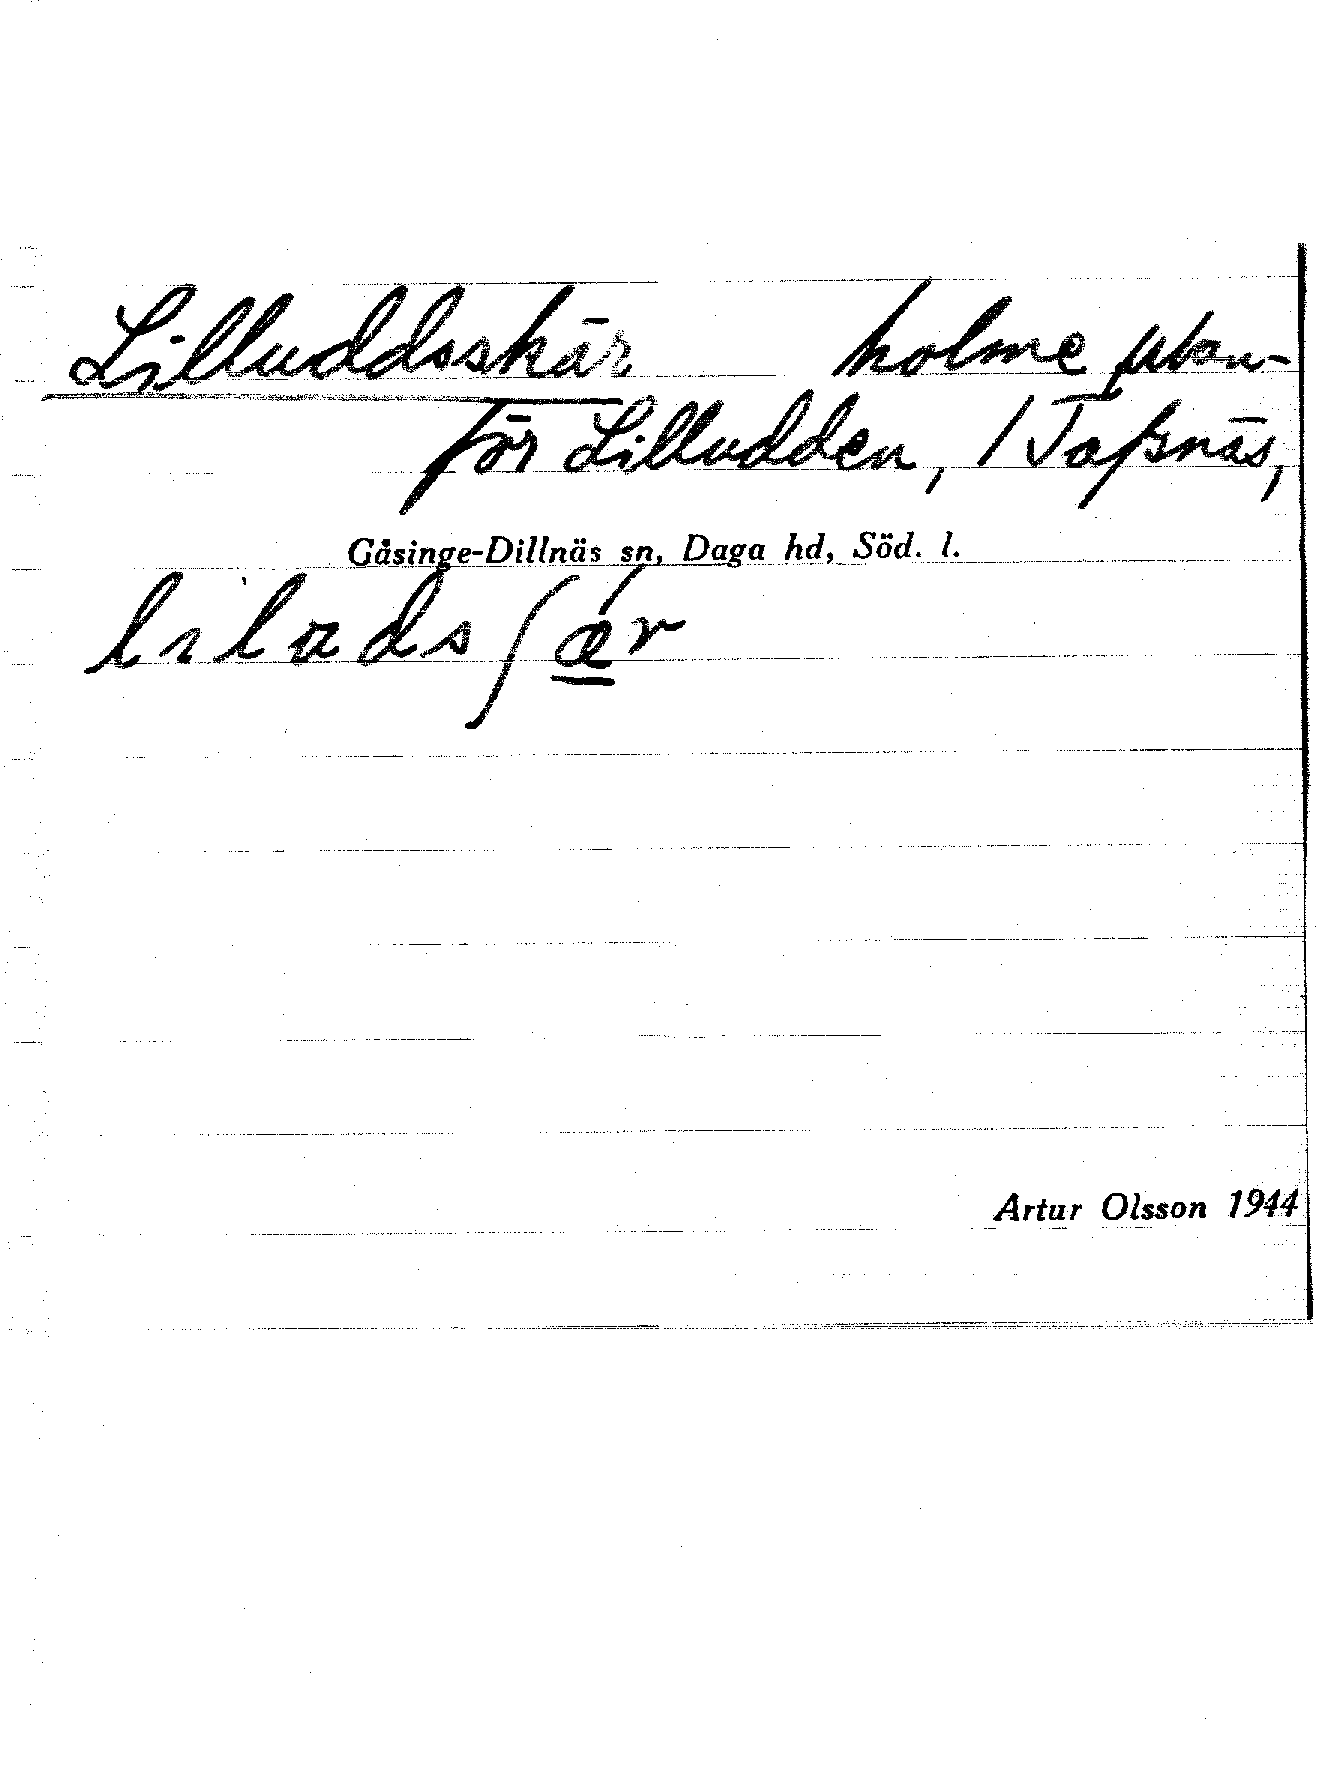 Lilluddsskär holme utan-
för Lilludden, 1 Topsnäs,
Gåsinge-Dillnäs sn, Daga hd, Söd. l.
Artur Olsson 1944